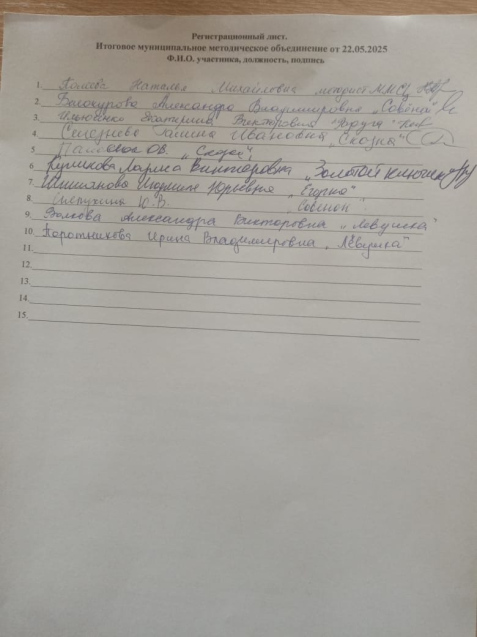 Регистрационный лист.
Итоговое муниципальное методическое объединение от 22.05.2025
Ф.И.О. участника, должность, подпись
1. Наталья Михайловна методист ММС
2. Белокурова Александра Владимировна „Совёнок"
3. Екатерина Викторовна
4. Селезнева Галина Ивановна „Сказка"
5. О.В. „Сказка"
6. Куликова Лариса Викторовна „Золотой ключик"
7. Юрьевна
8. Ю.В. Совенок
9. Александра Викторовна „Левушка"
10. Воротникова Ирина Владимировна „Лёвушка"
11.
12.
13.
14.
15.